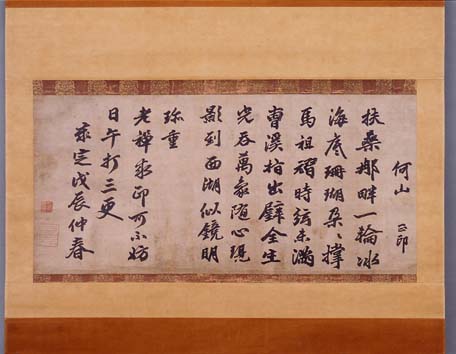 何山
扶桑那畔一輪冰
海底珊瑚朶〻撑
馬祖翫時猶未滿
曹溪指出全生
光吞萬象随心現
影到西湖似鏡明
珎重
老禪印可不妨
日午打三更
嘉定戊辰仲春